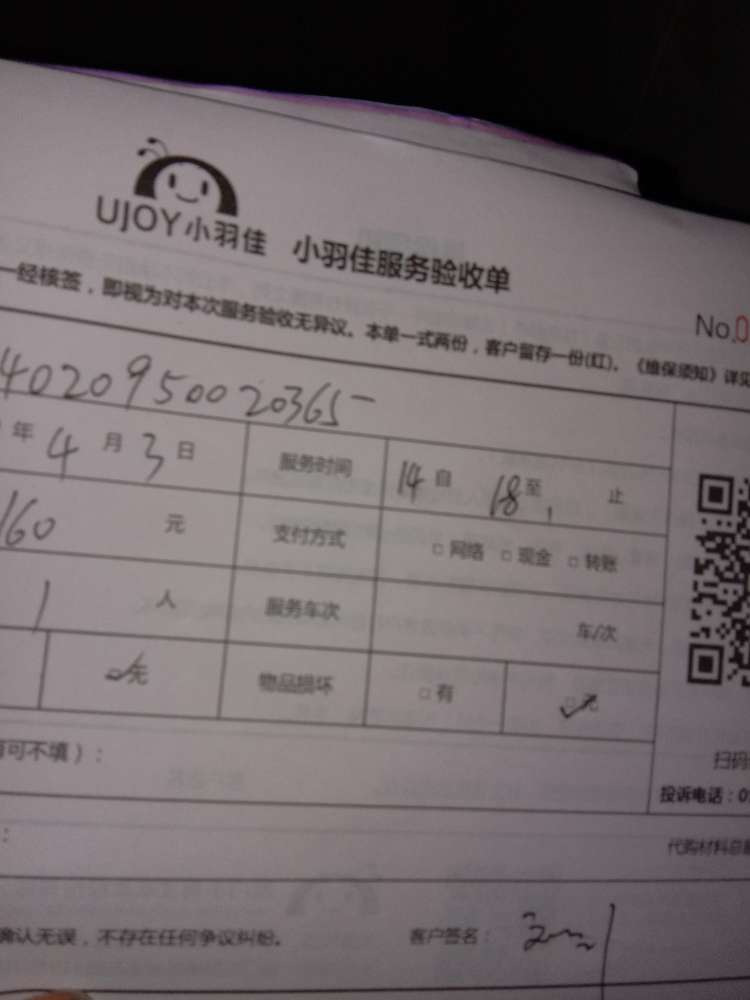 UJOY小羽佳 小羽佳服务验收单
No.0
一经核签，即视为对本次服务验收无异议。本单一式两份，客户留存一份(红)。《维保须知》详见
4020950020365
年 4 月 3 日 服务时间 14 自 18 至 止
160 元 支付方式 □ 网络 □ 现金 □ 转账
1 人 服务车次 车/次
无 物品损坏 □ 有 □ 无
可不填）：
扫码
投诉电话：0
：
代购材料总
确认无误，不存在任何争议纠纷。 客户签名：